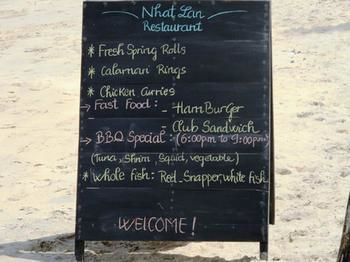 Nhat Lan
Restaurant
* Fresh Spring Rolls
* Calamari Rings
* Chicken Curries
→ Fast Food : _ HamBurger
Club Sandwich
→ BBQ Special : (6:00pm to 9:00pm)
(Tuna, Shrim, Squid, vegetable)
* Whole fish : Red Snapper, white fish
WELCOME!